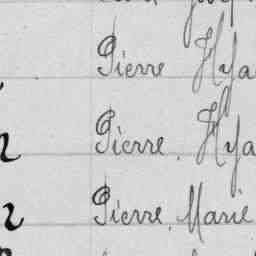 Pierre Hya
Pierre, Hya
Pierre, Marie